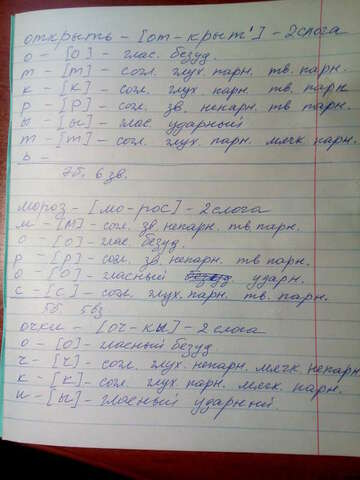 открыть - [от-крыт'] - 2 слога
о - [о] - глас. безуд.
т - [т] - согл. глух. парн. тв. парн.
к - [к] - согл. глух. парн. тв. парн
р - [р] - согл. зв. непарн. тв парн.
ы - [ы] - глас. ударный
т - [т] - согл. глух. парн. мягк. парн.
ь -
7б, 6 зв.
мороз - [мо-рос] - 2 слога
м - [м] - согл. зв непарн. тв парн.
о - [о] - глас. безуд.
р - [р] - согл. зв. непарн. тв парн.
о - [о] - гласный ударн.
с - [с] - согл. глух. парн. тв. парн.
5б. 5 зв
очки - [оч-кы] - 2 слога
о - [о] - гласный безуд.
ч - [ч] - согл. глух. непарн. мягк. непарн
к - [к] - согл. глух. парн. мягк. парн.
и - [ы] - гласный ударный.